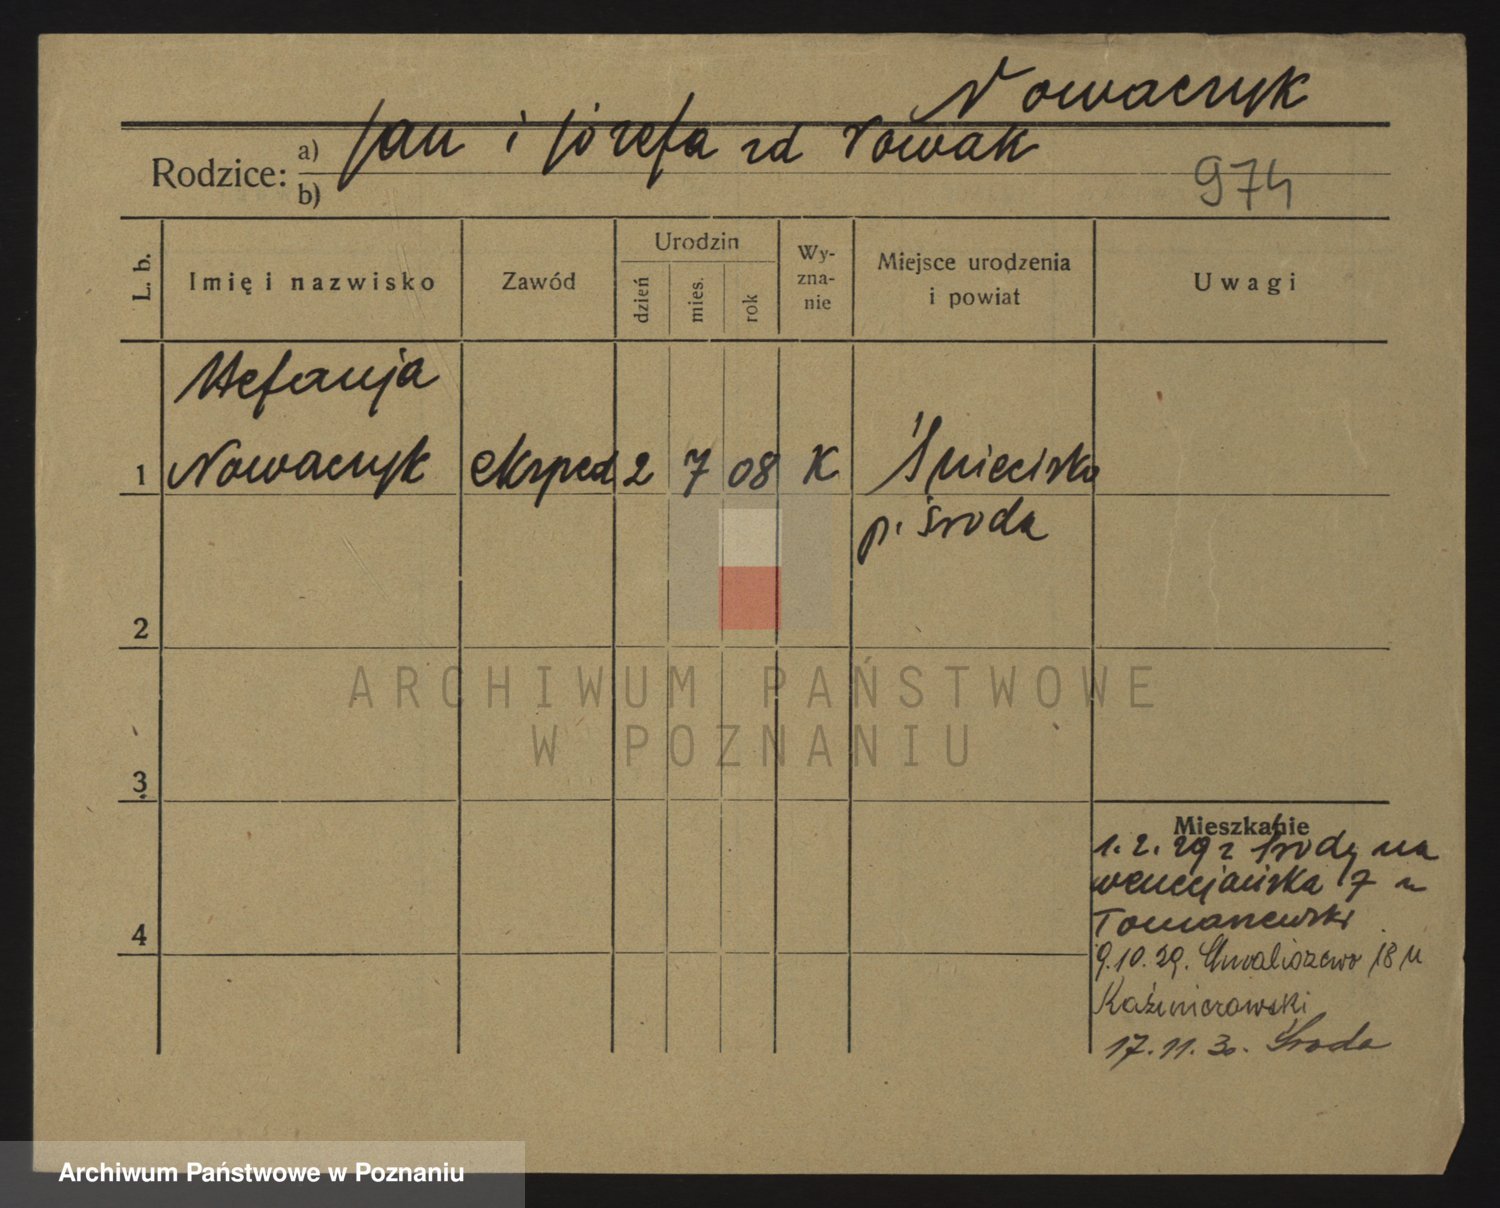 Nowaczyk
Rodzice: a) Jan i Józefa zd Nowak
b)
974
L. b. Imię i nazwisko Zawód Urodzin dzień mies. rok Wy-zna-nie Miejsce urodzenia i powiat Uwagi
Stefanja
1 Nowaczyk eksped 2 7 08 K Śnieciska
p. Środa
2
ARCHIWUM PAŃSTWOWE
W POZNANIU
3
Mieszkanie
1. 2. 29 z Środy na
wenecjańska 7 u
Tomaszewski
4
9.10.29. Chwaliszewo 18 u
Kaźmierowski
17. 11. 30. Środa
Archiwum Państwowe w Poznaniu